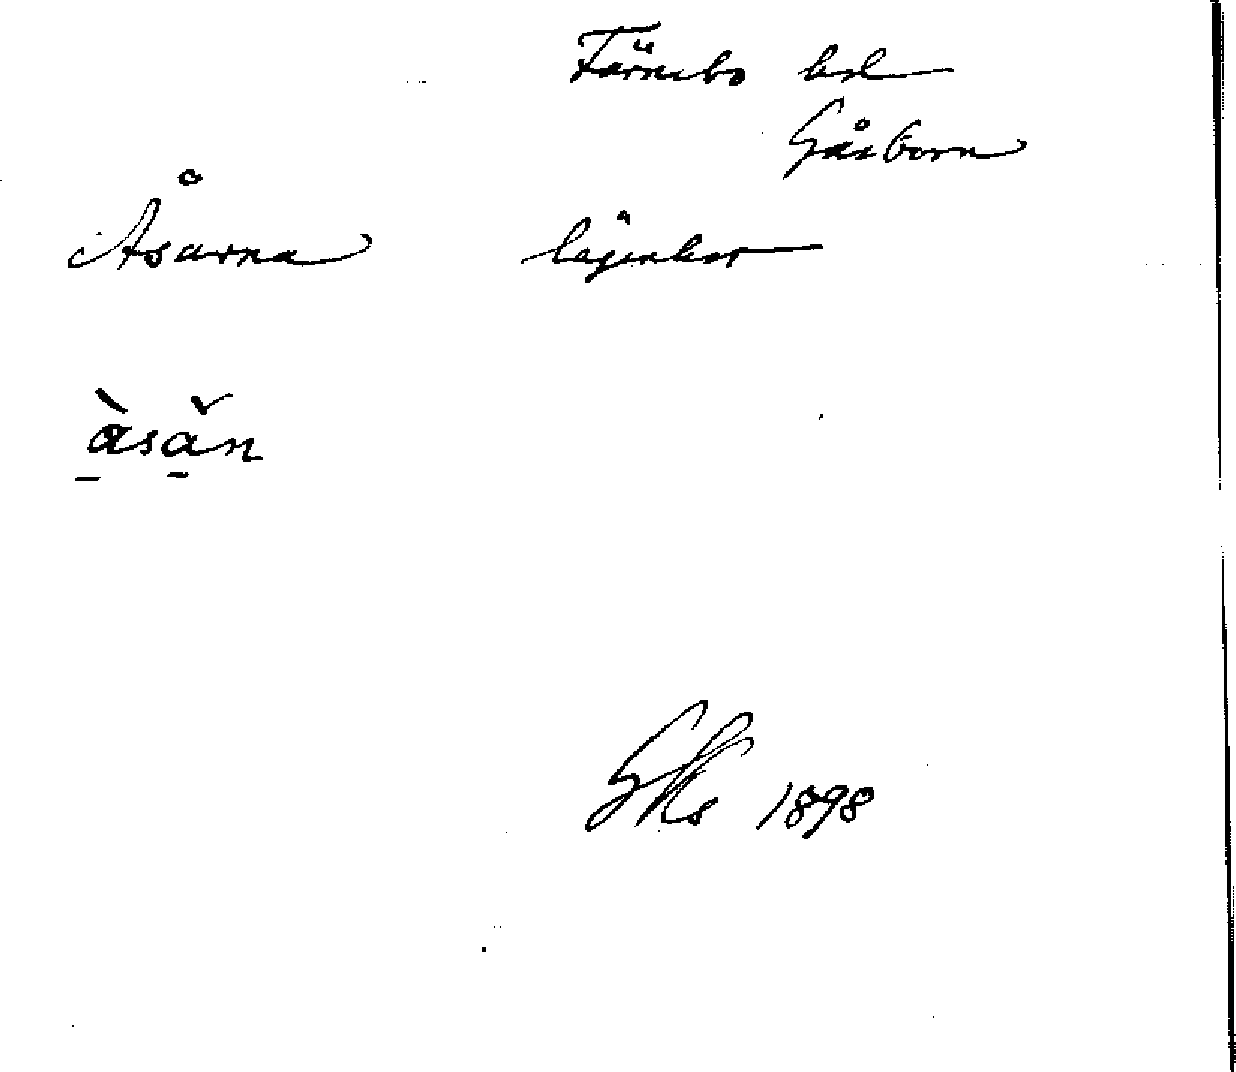 Färnebo hd
Gåsborn
Åsarna lägenhet
a̠̍̀sa̠̍̌n
GKs 1898